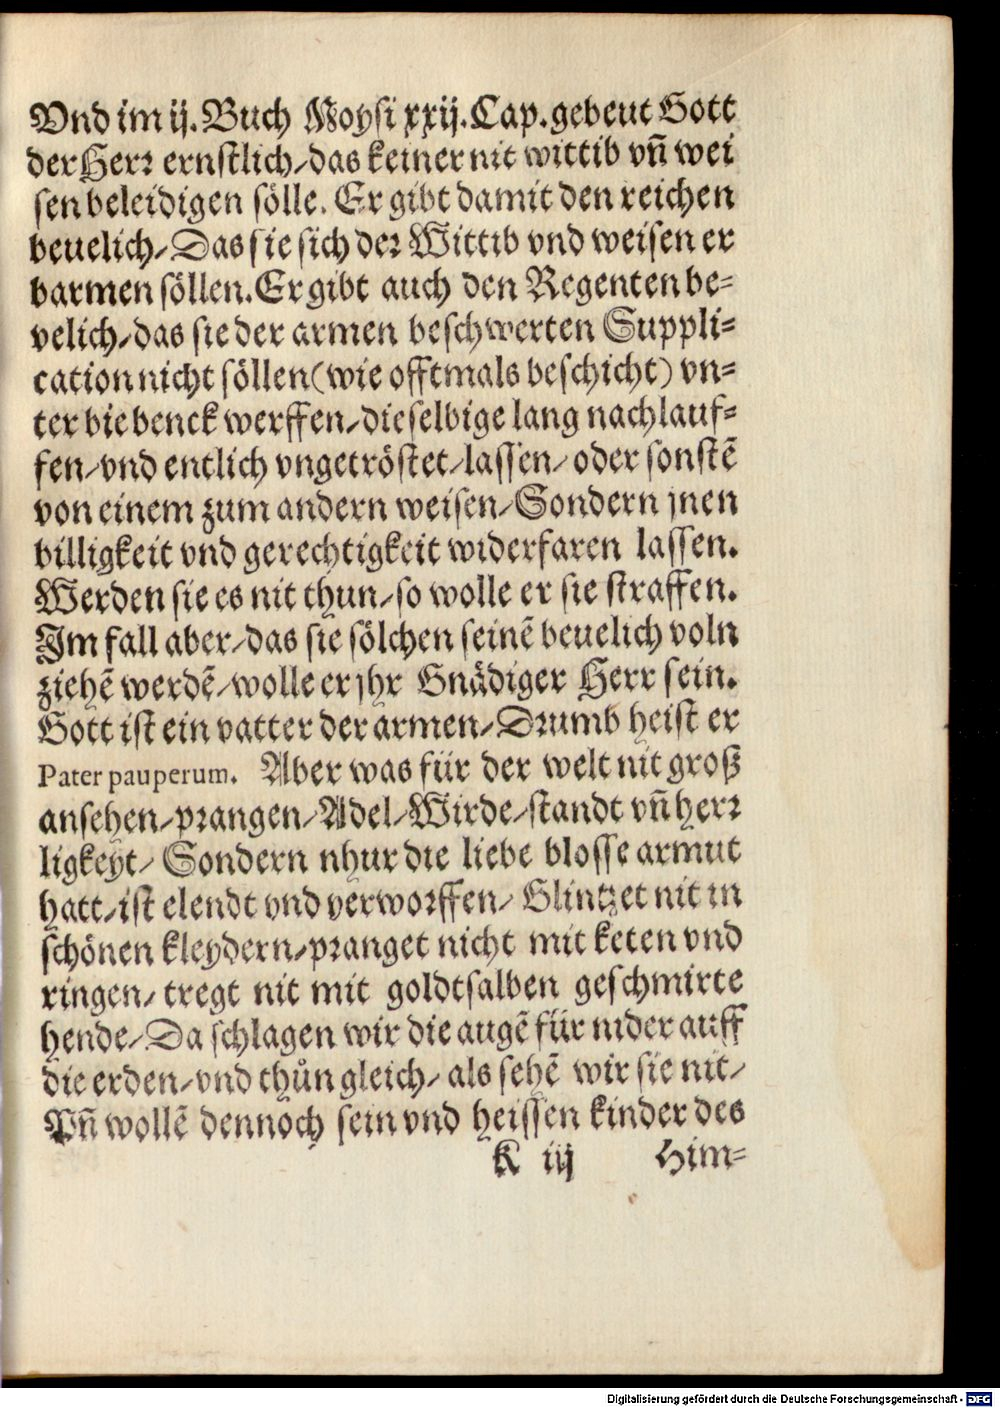 Vnd im ij. Buch Moysi xxij. Cap. gebeut Gott
der Herr ernstlich/ das keiner nit wittib vñ wei
sen beleidigen sölle. Er gibt damit den reichen
beuelich/ Das sie sich der Wittib vnd weisen er
barmen söllen. Er gibt auch den Regenten be-
velich/ das sie der armen beschwerten Suppli-
cation nicht söllen (wie offtmals beschicht) vn-
ter die benck werffen/ dieselbige lang nachlauf-
fen/ vnd entlich vngetröstet/ lassen/ oder sonstẽ
von einem zum andern weisen/ Sondern jnen
billigkeit vnd gerechtigkeit widerfaren lassen.
Werden sie es nit thun/ so wolle er sie straffen.
Im fall aber/ das sie sölchen seinẽ beuelich voln
ziehẽ werdẽ/ wolle er jhr Gnädiger Herr sein.
Gott ist ein vatter der armen/ Drumb heist er
Pater pauperum. Aber was für der welt nit groß
ansehen/ prangen/ Adel/ Wirde/ standt vñ herr
ligkeyt/ Sondern nhur die liebe blosse armut
hatt/ ist elendt vnd verworffen/ Glintzet nit in
schönen kleydern/ pranget nicht mit keten vnd
ringen/ tregt nit mit goldtsalben geschmirte
hende/ Da schlagen wir die augẽ für nider auff
die erden/ vnd thůn gleich/ als sehẽ wir sie nit/
Vñ wollẽ dennoch sein vnd heissen kinder des
K iij Him-
Digitalisierung gefördert durch die Deutsche Forschungsgemeinschaft - DFG